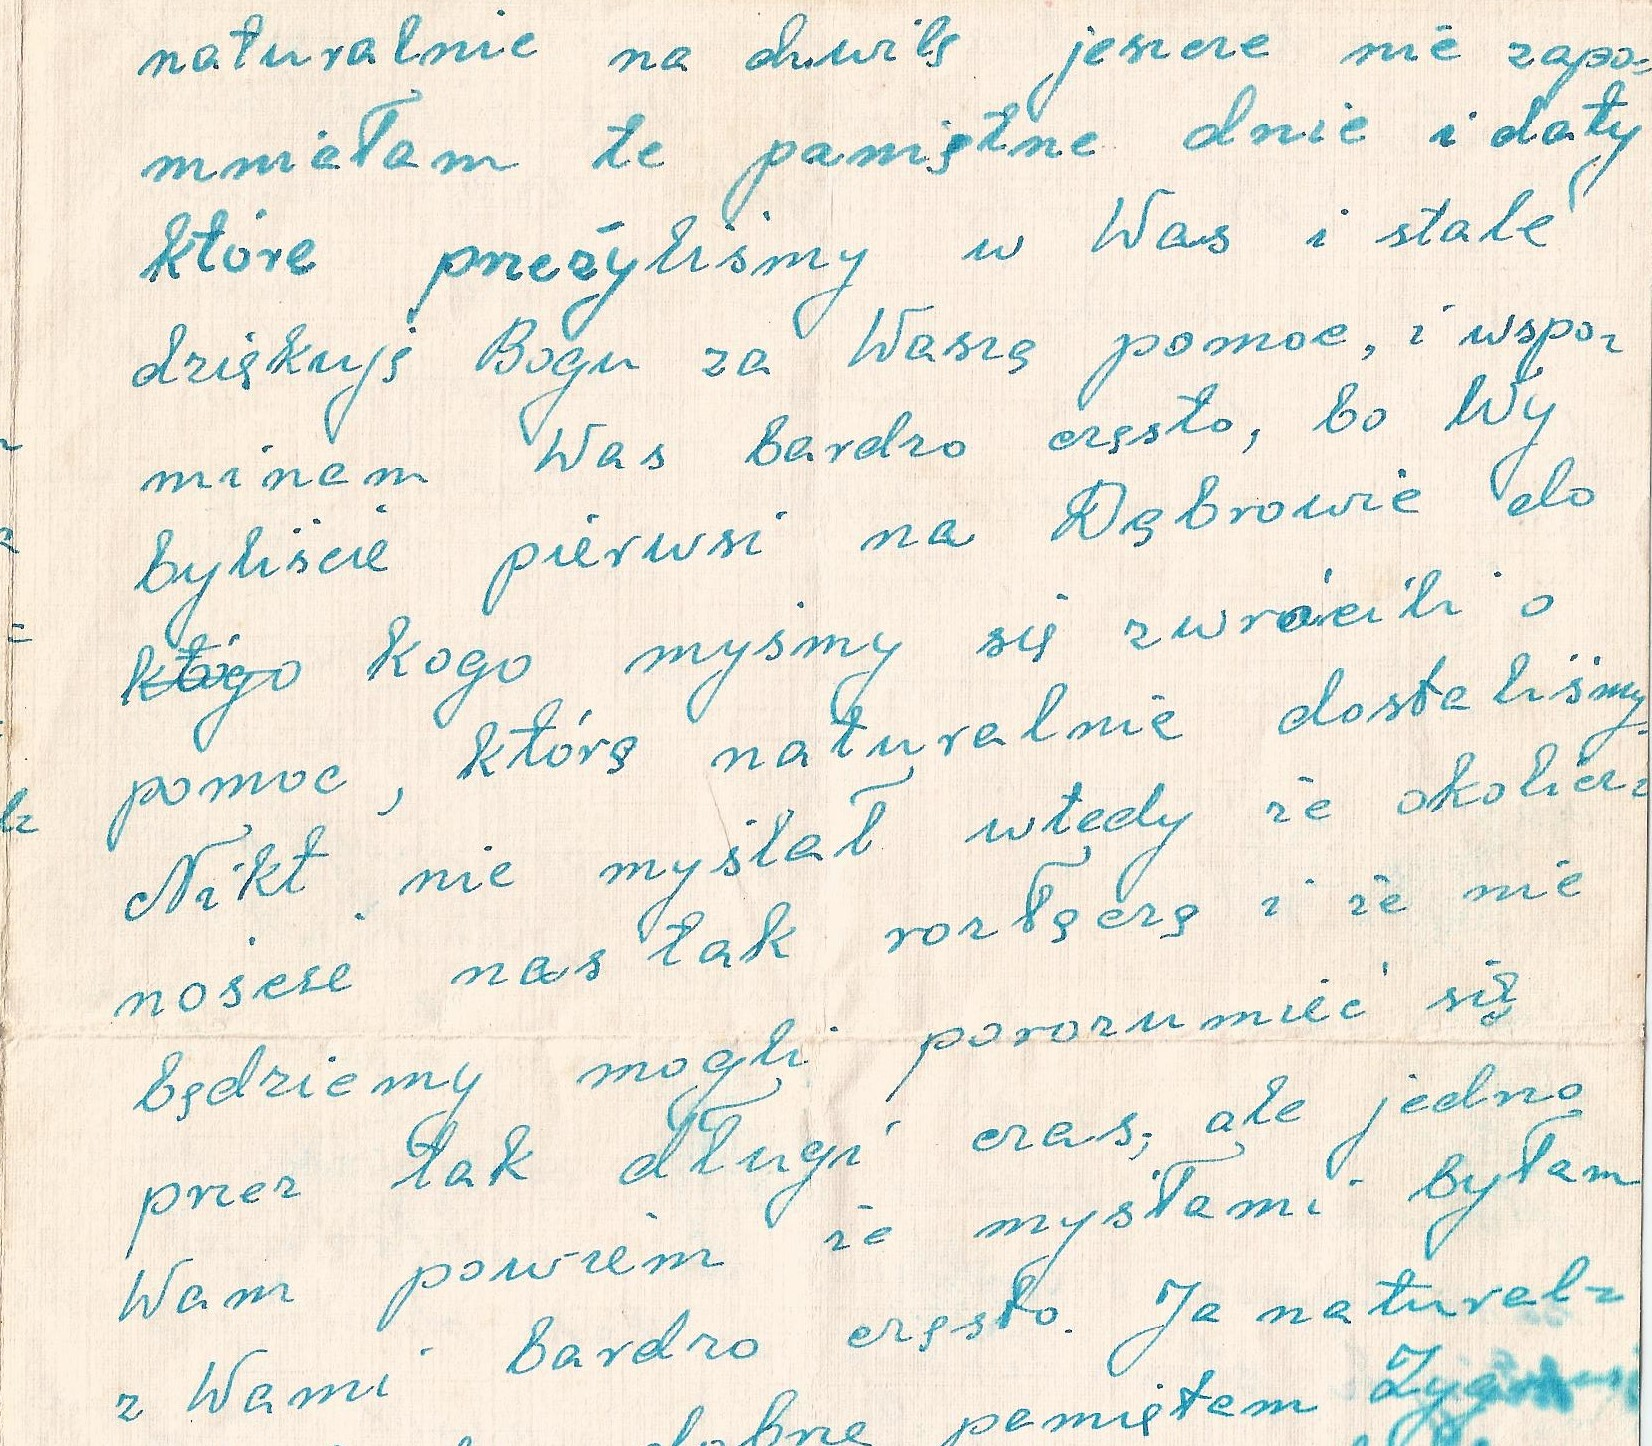 naturalnie na chwilę jeszcze nie zapo=
mniałam te pamiętne dnie i daty
które przeżyliśmy u Was i stale
dziękuję Bogu za Waszą pomoc, i wspo-
minam Was bardzo często, bo Wy
byliście pierwsi na Dąbrowie do
kogo myśmy się zwrócili o
pomoc, którą naturalnie dostaliśmy.
Nikt nie myślał wtedy że okolicz=
ności nas tak rozłączą i że nie
będziemy mogli porozumieć się
przez tak długi czas, ale jedno
Wam powiem że myślami byłam
z Wami bardzo często. Ja natural=
dobrze pamiętam